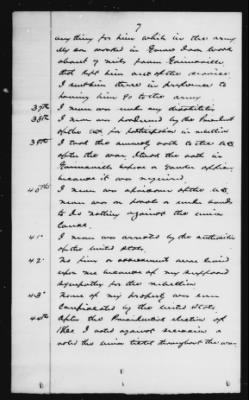 7
anything for him while in the army
My son worked in Gaines Iron Work
about 7 miles from Gainesville
that kept him out of the service.
I sent him there in preference to
having him go to the army
37th I never was under any disabilities
38th I never was pardoned by the President
of the US for participation in rebellion
39th I took the amnesty oath to the US
after the war. I took the oath in
Gainesville before a Quarter officer
because it was required
40th I never was a prisoner of the US
never was on parole or under bonds
to do nothing against the union
cause.
41st I never was arrested by the authorities
of the United States.
42d No fine or assessment were levied
upon me because of my supposed
sympathy for the rebellion
43d None of my property was ever
confiscated by the United States.
44th After the Presidential election of
1860 I voted against secession &
voted the union ticket throughout the war